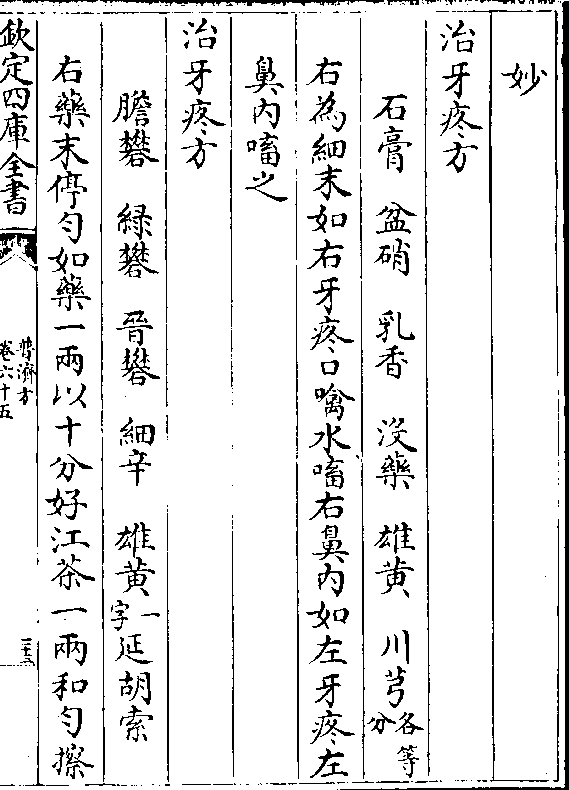 妙
治牙疼方
石膏　盆硝　乳香　没藥　雄黄　川芎各等分
右為細末如右牙疼口噙水㗜右鼻内如左牙疼左
鼻内㗜之
治牙疼方
膽礬　緑礬　晉礬　細辛　雄黄一字延胡索
右藥末停勻如藥一兩以十分好江茶一兩和勻擦
欽定四庫全書
普濟方
卷六十五